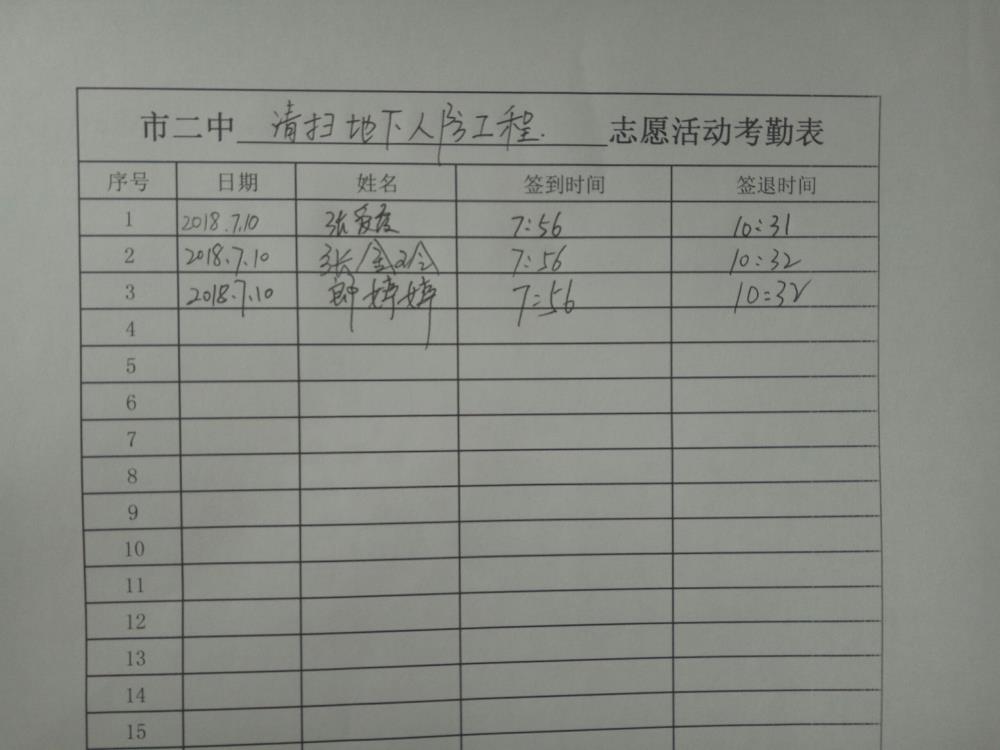 市二中 清扫地下人防工程. 志愿活动考勤表
序号 日期 姓名 签到时间 签退时间
1 2018.7.10 张爱 7:56 10:31
2 2018.7.10 张金 7:56 10:32
3 2018.7.10 婷婷 7:56 10:32
4
5
6
7
8
9
10
11
12
13
14
15